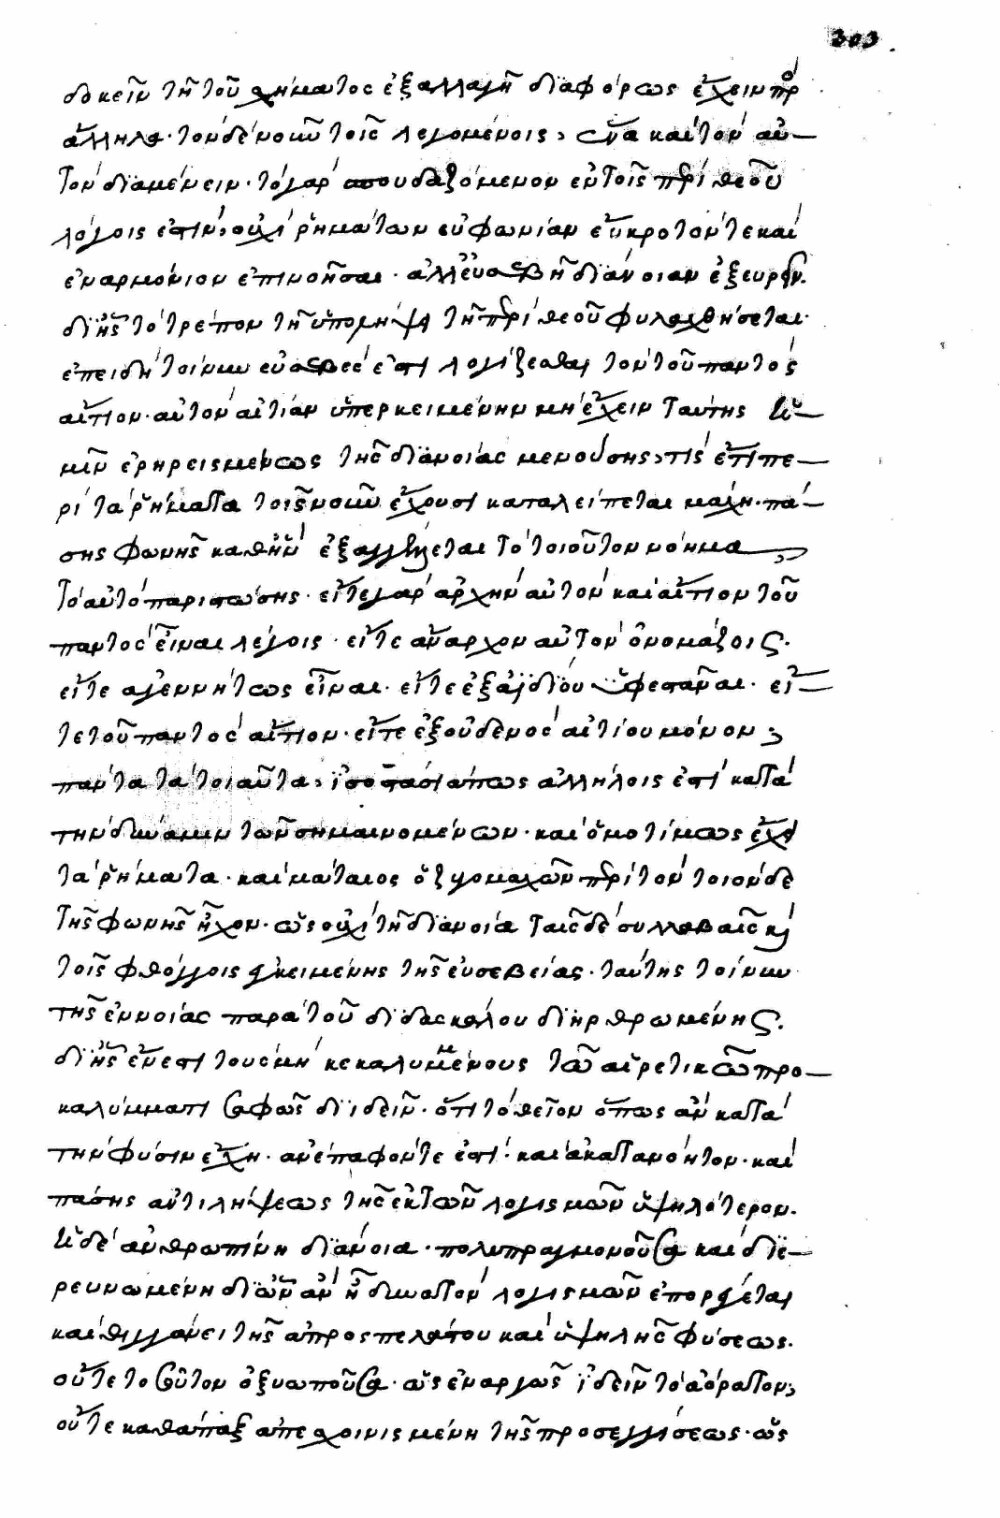 303
δοκεῖν τῆ τοῦ σχήματος ἐξαλλαγῆ διαφόρως ἔχειν πρὸς
ἄλληλα· τὸν δὲ νοῦν τοῖς λεγομένοις, ἕνα καὶ τὸν αὐ–
τὸν διαμένειν· τὸ γὰρ σπουδαζόμενον ἐν τοῖς περὶ θεοῦ
λόγοις ἐστὶν, οὐχὶ ῥημάτων εὐφωνίαν εὔκροτόν τε καὶ
ἐναρμόνιον ἐπινοῆσαι· ἀλλ' εὐσεβῆ διάνοιαν ἐξευρεῖν.
δι' ἧς τὸ πρέπον τῆ ὑπολήψει τῆ περὶ θεοῦ φυλαχθήσεται·
ἐπειδὴ τοίνυν εὐσεβές ἐστι λογίζεσθαι τὸν τοῦ παντὸς
αἴτιον· αὐτὸν αἰτίαν ὑπερκειμένην μὴ ἔχειν ταύτης ἡ–
μῖν ἐρηρεισμένως τῆς διανοίας μενούσης, τίς ἔτι πε–
ρὶ τὰ ῥήματα τοῖς νοῦν ἔχουσι καταλείπεται μάχη· πά–
σης φωνῆς καθ' ἣν ἐξαγγέλλεται τὸ τοιοῦτον νόημα
τὸ αὐτὸ παριστώσης· εἴτε γὰρ ἀρχὴν αὐτὸν καὶ αἴτιον τοῦ
παντὸς εἶναι λέγοις· εἴτε ἄναρχον αὐτὸν ὀνομάζοις.
εἴτε ἀγεννήτως εἶναι· εἴτε ἐξ ἀϊδίου ὑφεστάναι· εἴ–
τε τοῦ παντὸς αἴτιον· εἴτε ἐξ οὐδενὸς αἰτίου μόνον,
πάντα τὰ τοιαῦτα, ἰσοστάσια πως ἀλλήλοις ἐστὶ κατὰ
τὴν δύναμιν τῶν σημαινομένων· καὶ ὁμοτίμως ἔχει
τὰ ῥήματα· καὶ μάταιος ὁ ζυγομαχῶν περὶ τὸν τοιόνδε
τῆς φωνῆς ἦχον· ὡς οὐχὶ τῆ διανοία ταῖς δὲ συλλαβαῖς καὶ
τοῖς φθόγγοις ἐγκειμένης τῆς εὐσεβείας· ταύτης τοίνυν
τῆς ἐννοίας παρὰ τοῦ διδασκάλου διηρθρωμένης.
δι' ἧς ἔνεστι τοὺς μὴ κεκαλυμμένους τῶ αἱρετικῶ προ–
καλύμματι σαφῶς διϊδεῖν· ὅτι τὸ θεῖον ὅπως ἂν κατὰ
τὴν φύσιν ἔχη· ἀνέπαφόν τε ἐστὶ· καὶ ἀκατανόητον· καὶ
πάσης ἀντιλήψεως τῆς ἐκ τῶν λογισμῶν ὑψηλότερον.
ἡ δὲ ἀνθρωπίνη διάνοια· πολυπραγμονοῦσα καὶ διε–
ρευνωμένη δι' ὧν ἂν ἦ δυνατὸν λογισμῶν ἐπορέγεται
καὶ θιγγάνει τῆς ἀπροσπελάστου καὶ ὑψηλῆς φύσεως.
οὔτε τοσοῦτον ὀξυωποῦσα· ὡς ἐναργῶς ἰδεῖν τὸ ἀόρατον,
οὔτε καθάπαξ ἀπεσχοινισμένη τῆς προσεγγίσεως· ὡς